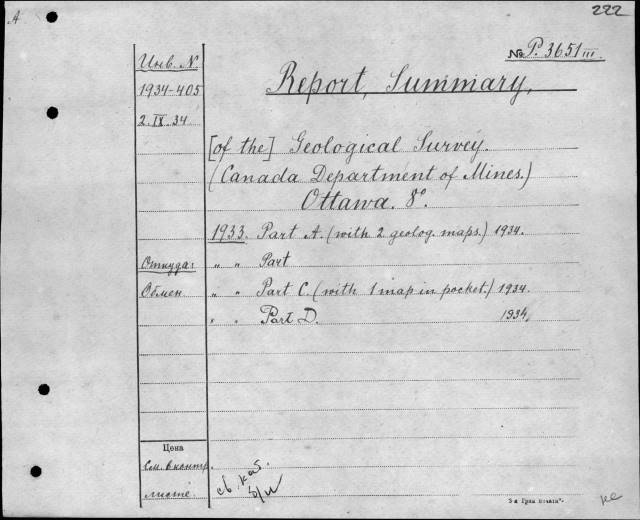 A
222
№ P. 3651 III.
Инв. N
1934-405
2.IX.34
Report, Summary,
[of the] Geological Survey.
(Canada Department of Mines.)
Ottawa. 8°.
1933. Part A. (with 2 geolog. maps.) 1934.
Откуда: „ „ Part
Обмен „ „ Part C. (with 1 map in pocket.) 1934.
„ „ Part D. 1934.
Цена
См. в контр.
листе.
св. каб.